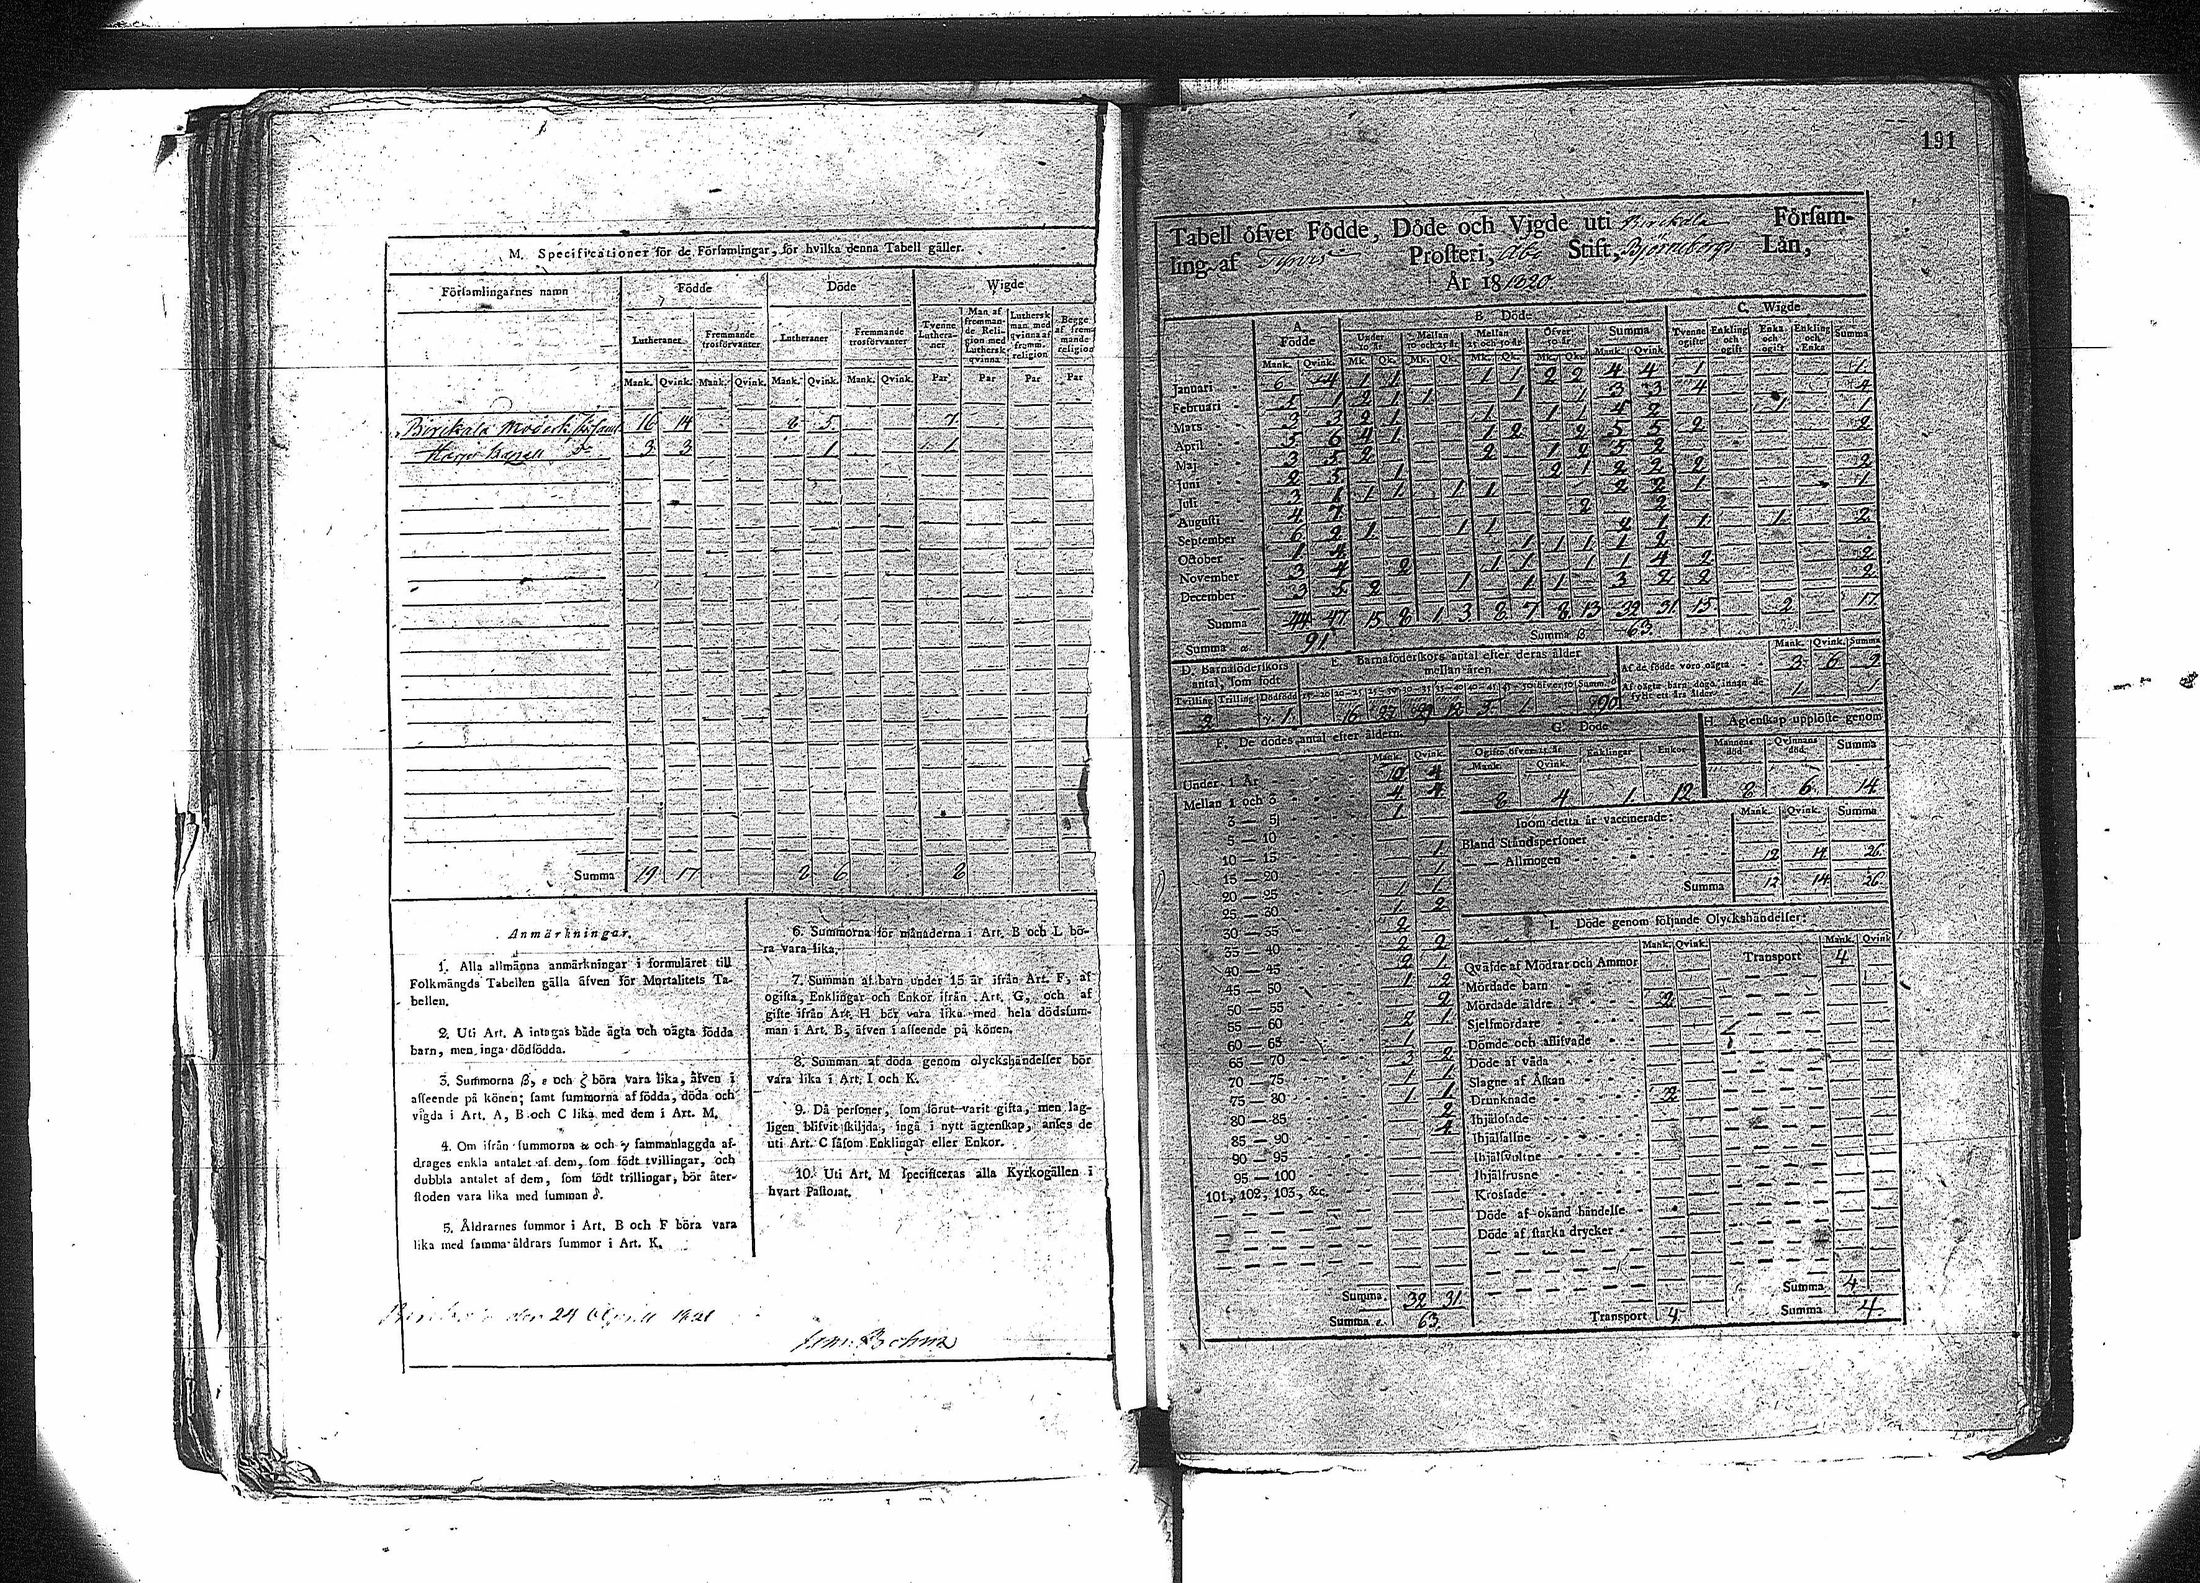 M. Specificationer för de Församlingar, för hvilka denna Tabell gäller.
Församlingarnes namn Födde Döde Wigde
Lutheraner Fremmande trosförvanter Lutheraner Fremmande trosförvanter Tvenne Lutheraner Man af fremmande Religion med Luthersk qvinna Luthersk man med qvinna af fremm. religion
Mank. Qvink. Mank. Qvink. Mank. Qvink. Mank. Qvink. Par Par Par Par
Birckala Moderk 16 14 2 5 7
3 3 1 1
Summa 19 17 2 6 8
Anmärkningar.
1. Alla allmänna anmärkningar i formuläret till
Folkmängds Tabellen gälla äfven för Mortalitets Ta-
bellen.
2. Uti Art. A intagas både ägta och oägta födda
barn, men inga dödfödda.
3. Summorna β, ε och ζ böra vara lika, äfven i
afseende på könen; samt summorna af födda, döda och
vigda i Art. A, B och C lika med dem i Art. M.
4. Om ifrån summorna α och γ sammanlaggda af-
drages enkla antalet af dem, som födt tvillingar, och
dubbla antalet af dem, som födt trillingar, bör åter-
stoden vara lika med summan δ.
5. Åldrarnes summor i Art. B och F böra vara
lika med samma åldrars summor i Art. K.
6. Summorna för månaderna i Art. B och L bö-
ra vara lika.
7. Summan af barn under 15 år ifrån Art. F, af
ogifta, Enklingar och Enkor ifrån Art. G, och af
gifte ifrån Art. H bör vara lika med hela dödssum-
man i Art. B, äfven i afseende på könen.
8. Summan af döda genom olyckshändelser bör
vara lika i Art. I och K.
9. Då personer, som förut varit gifta, men lag-
ligen blifvit skiljda, ingå i nytt ägtenskap, anses de
uti Art. C såsom Enklingar eller Enkor.
10. Uti Art. M specificeras alla Kyrkogällen i
hvart Pastorat.
den 24 April 1821
191
Tabell öfver Födde, Döde och Vigde uti Birckala Försam-
ling af Prosteri, Åbo Stift, Björneborgs Län,
År 18 1820
A. Födde B. Döde C. Wigde
Under 10 år Mellan 10 och 25 år Mellan 25 och 50 år Öfver 50 år Summa Tvenne ogifte Enkling och ogift Enka och ogift Enkling och Enka Summa
Mank. Qvink. Mk. Qk. Mk. Qk. Mk. Qk. Mk. Qk. Mank. Qvink.
Januari 6 4 1 1 1 1 2 2 4 4 1 1
Februari 5 1 2 1 1 1 1 3 3 4 4
Mars 3 3 2 1 1 1 1 4 2 1 1
April 5 6 4 1 1 2 2 5 5 2 2
Maj 3 5 2 2 1 2 5 2
Juni 2 5 1 2 1 2 2 2 2
Juli 3 1 1 1 1 1 2 2 1 1
Augusti 4 7 2 2
September 6 2 1 1 1 2 1 1 1 2
October 1 2 1 1 1 1 2
November 3 4 2 1 1 1 1 4 2 2
December 3 5 2 1 1 1 3 2 2 2
Summa 44 47 15 8 1 3 8 7 8 13 32 31 15 2 17
Summa α 91 Summa β 63
D. Barnaföderskors antal, som födt
E. Barnaföderskors antal efter deras ålder mellan åren
Tvilling Trilling Dödfödd Summa δ
2 1 16 23 29 12 1 90
Af de födde voro oägta
Af oägta barn dogo innan de fyllt ett års ålder 1 1
F. De dödes antal efter åldern.
Mank. Qvink.
Under 1 År 10 4
Mellan 1 och 3 4 4
3 — 5 1
5 — 10
10 — 15 1
15 — 20 1
20 — 25 1 1
25 — 30 1 2
30 — 35 2
35 — 40 2 2
40 — 45 2 1
45 — 50 1 2
50 — 55 2
55 — 60 2 1
60 — 65 1
65 — 70 3 2
70 — 75 1 1
75 — 80 1 1
80 — 85 2
85 — 90 4
90 — 95
95 — 100
101, 102, 103, &c.
Summa 32 31
Summa ε. 63
G. Döde
Ogifte öfver 15 år Enklingar Enkor
Mank. Qvink.
8 4 1 12
H. Ägtenskap upplöste genom
Mannens död Qvinnans död Summa
8 6 14
Inom detta år vaccinerade: Mank. Qvink. Summa
Bland Ståndspersoner
— — Allmogen 12 14 26
Summa 12 14 26
I. Döde genom följande Olyckshändelser:
Mank. Qvink. Mank. Qvink.
Qväfde af Mödrar och Ammor Transport 4
Mördade barn
Mördade äldre 2
Sjelfmördare
Dömde och aflifvade
Döde af våda
Slagne af Åskan
Drunknade 2
Ihjälösade
Ihjälfallne
Ihjälsvultne
Ihjälfrusne
Krossade
Döde af okänd händelse
Döde af starka drycker
Transport 4 Summa 4
Summa 4